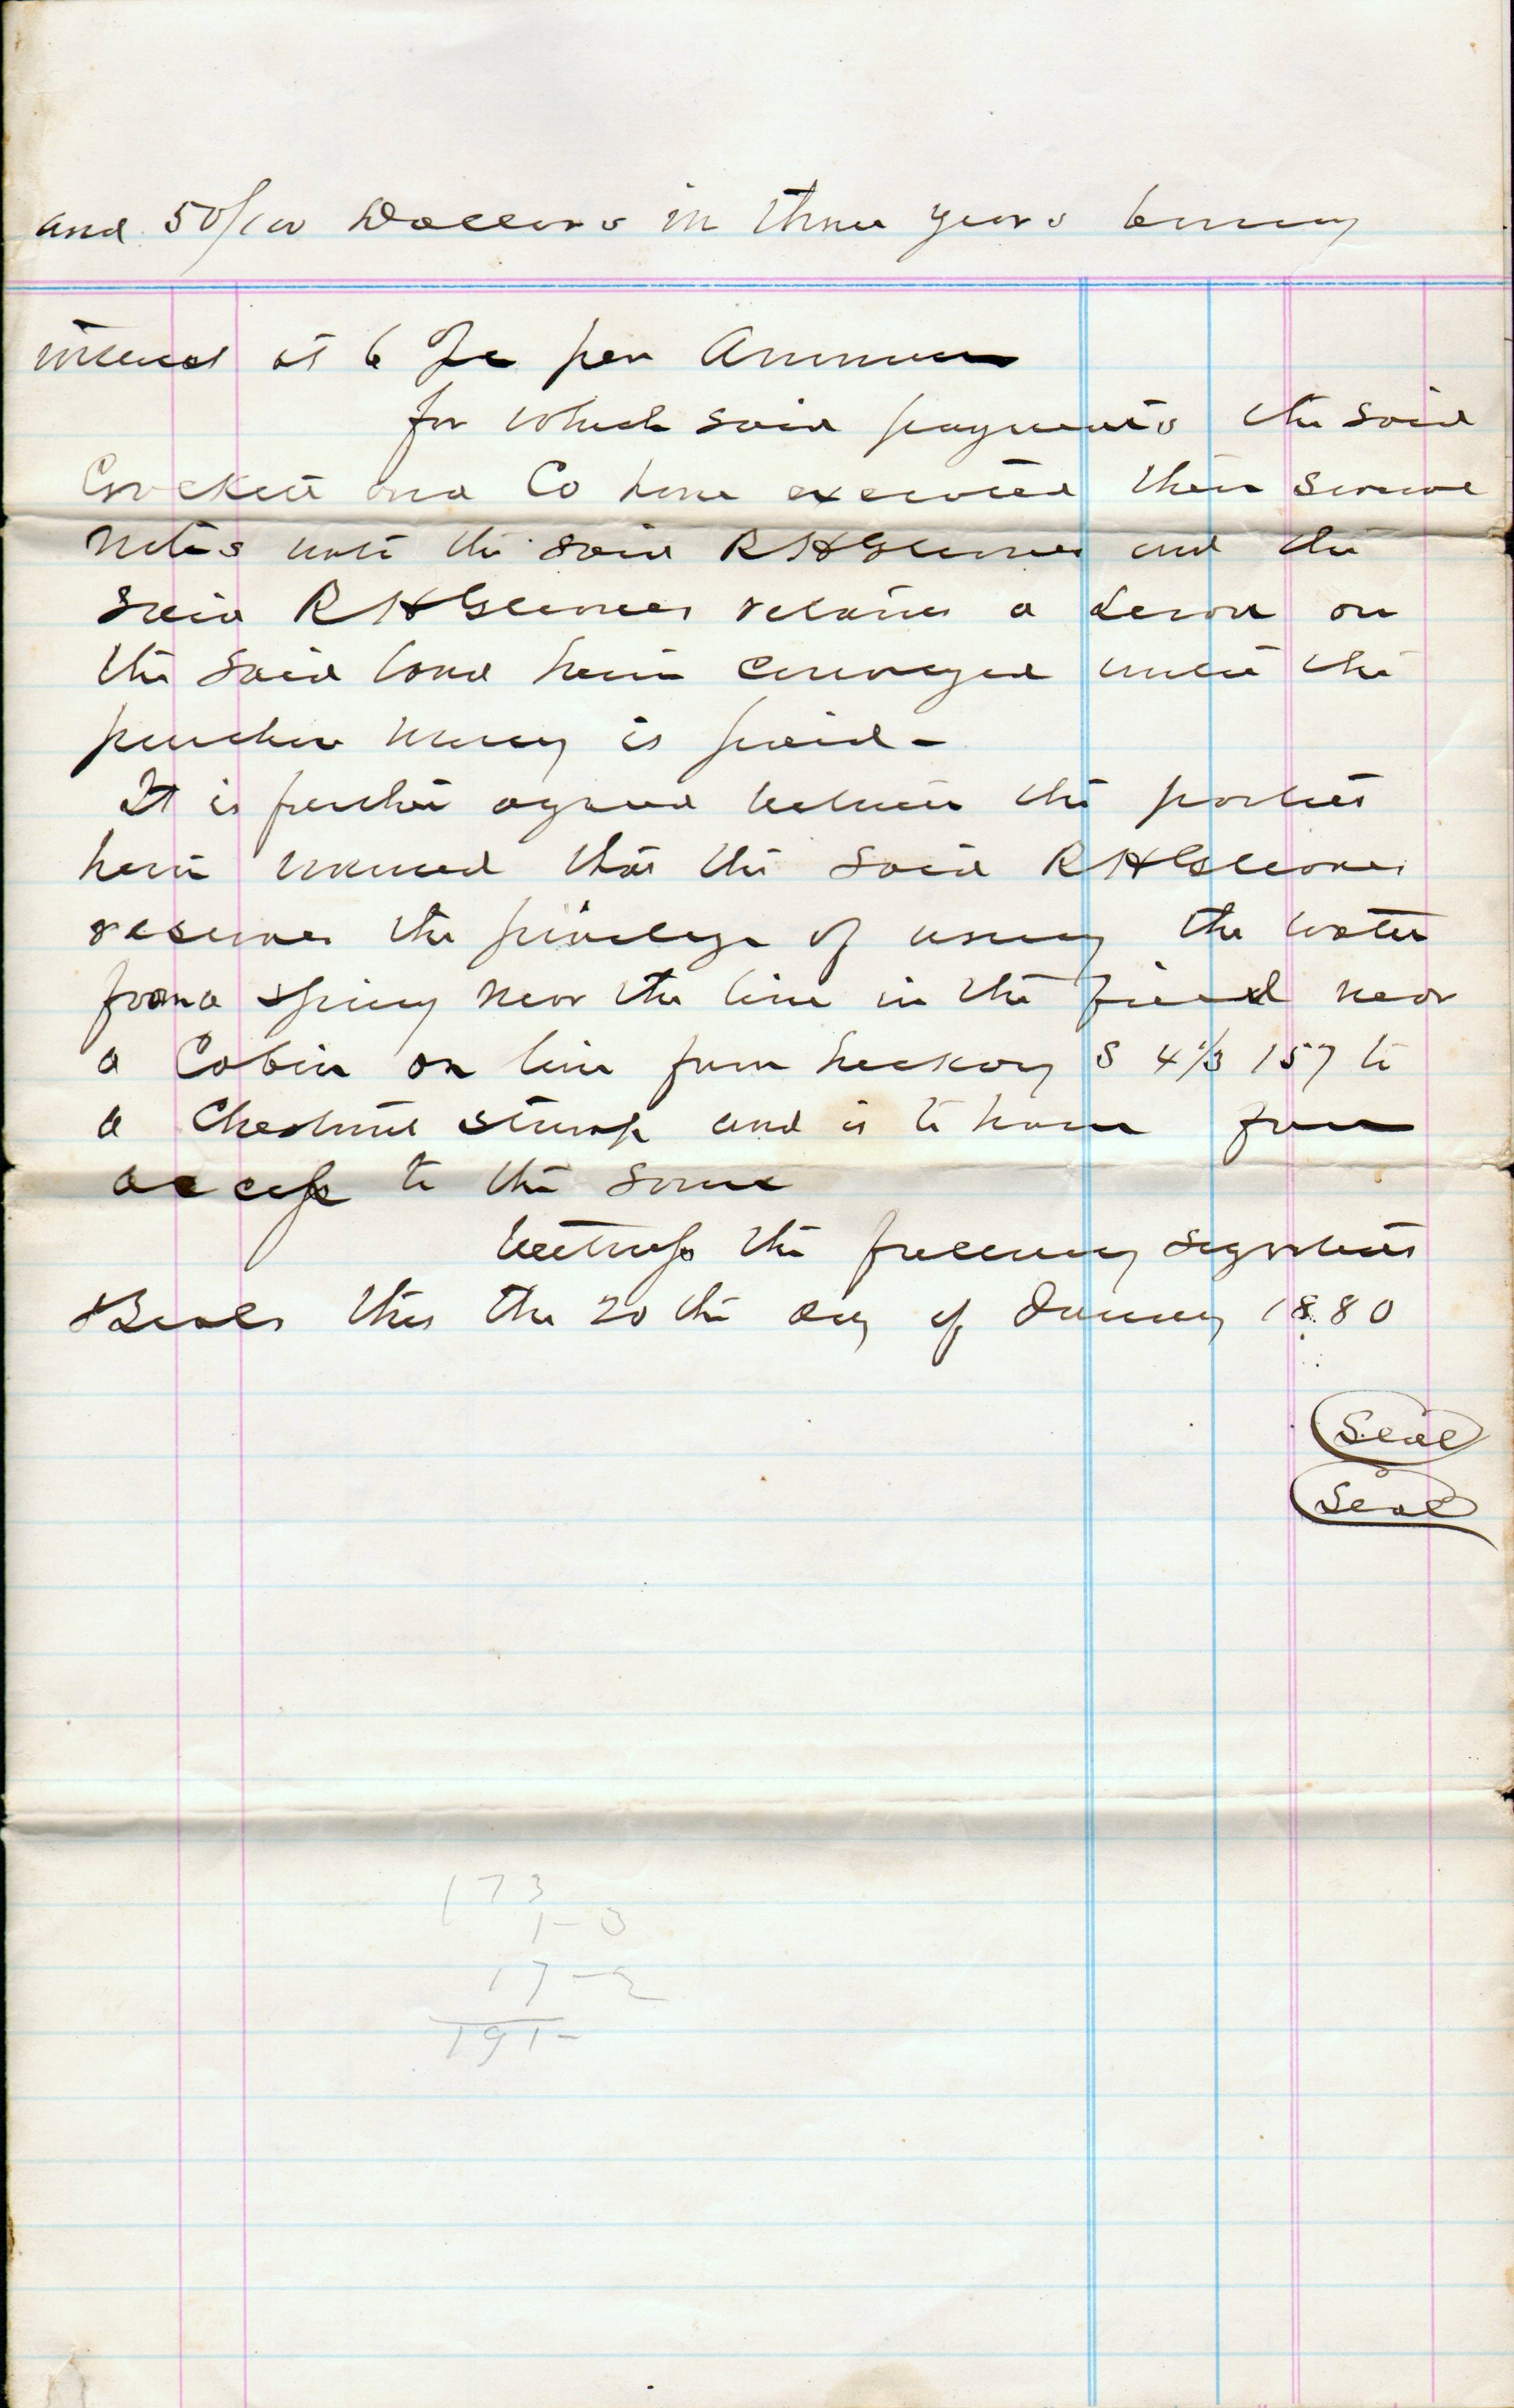 and 50/100 Dollars in three years bearing
interest at 6 % per Annum
for which said payments the said
Crockett and Co have executed their several
notes unto the said RH Gleaves and the
said RH Gleaves retains a Leion on
the said land herin conveyed untill the
purchase money is paid -
It is further agreed between the parties
herin named that the said RH Gleaves
reserves the privilege of using the water
from a spring near the line in the field near
a Cabin on line from hickory S 4 1/3 157 to
a Chestnut stump and is to have free
access to the same
Witness the following signatures
& Seals this the 20th day of January 1880
Seal
Seal
173
1-3
17-2
191-